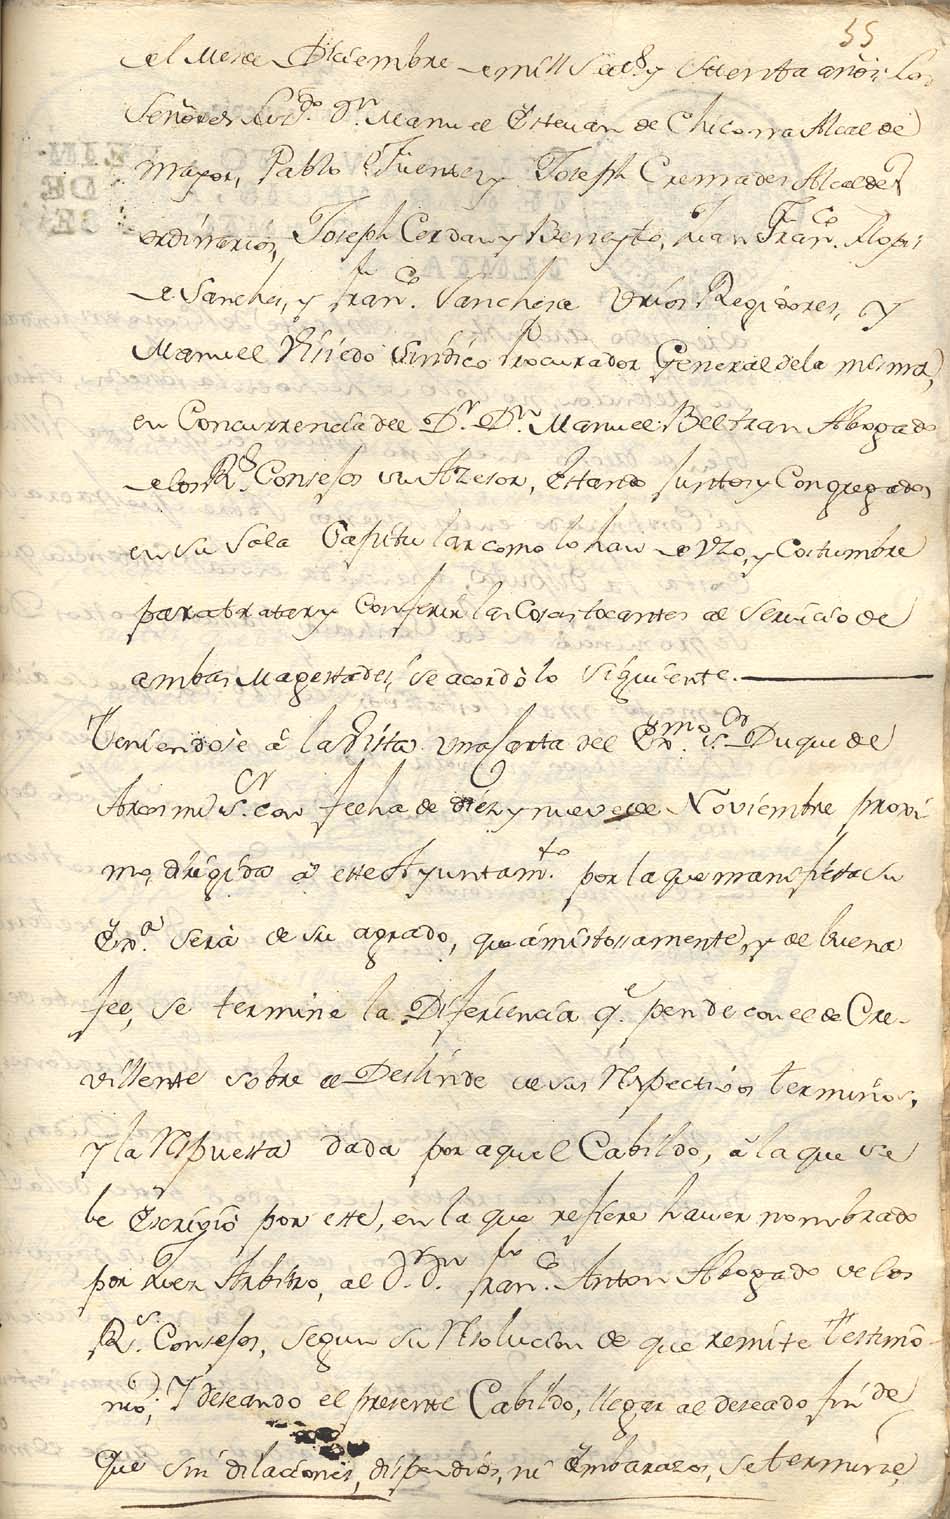 55
el Mes de Diziembre de mill Setecs. y Setenta años: Los
Señores Lizdo. Dn. Manuel Estevan de Chicorra Alcalde
mayor, Pablo Fuentes y Joseph Cremades Alcaldes
ordinarios, Joseph Cerdan y Beneyto, Juan Franco. Llopis
de Sanches, y Franco. Sanches de Urios Regidores, y
Manuel Visiedo Sindico Procurador General de la misma,
en Concurrencia del Dr. Dn. Manuel Beltran Abogado
de los Rs. Consejos su Azesor, estando juntos y Congregados
en su Sala Capitular como lo han de vzo, y Costumbre
para tratar y Conferir las Cosas tocantes al Servicio de
ambas Magestades, se acordò lo siguiente.
Teniendose â la vista una Carta del Exmo. Sor. Duque de
Arcos mi Sr. con fecha de diez y nueve de Noviembre proxi
mo, dirigida â este Ayuntamto. por la que manifiesta su
Exa. serà de su agrado, que amistossamente, y de buena
fee, se termine la Diferiencia qe. pende con el de Cre-
villente sobre el Deslinde de sus Respectivos terminos,
y la Respuesta dada por aquel Cabildo, â la que se
le Escriviò por este, en la que refiere haver nombrado
por Juez Arbitro, al Dr. Dn. Franco. Anton Abogado de los
Rs. Consejos, segun su Resolucion de que remite Testimo-
nio; Y deseando el presente Cabildo, llegar al deseado fin de
que sin dilaciones, dispendios, ni Embarazos, se termine,